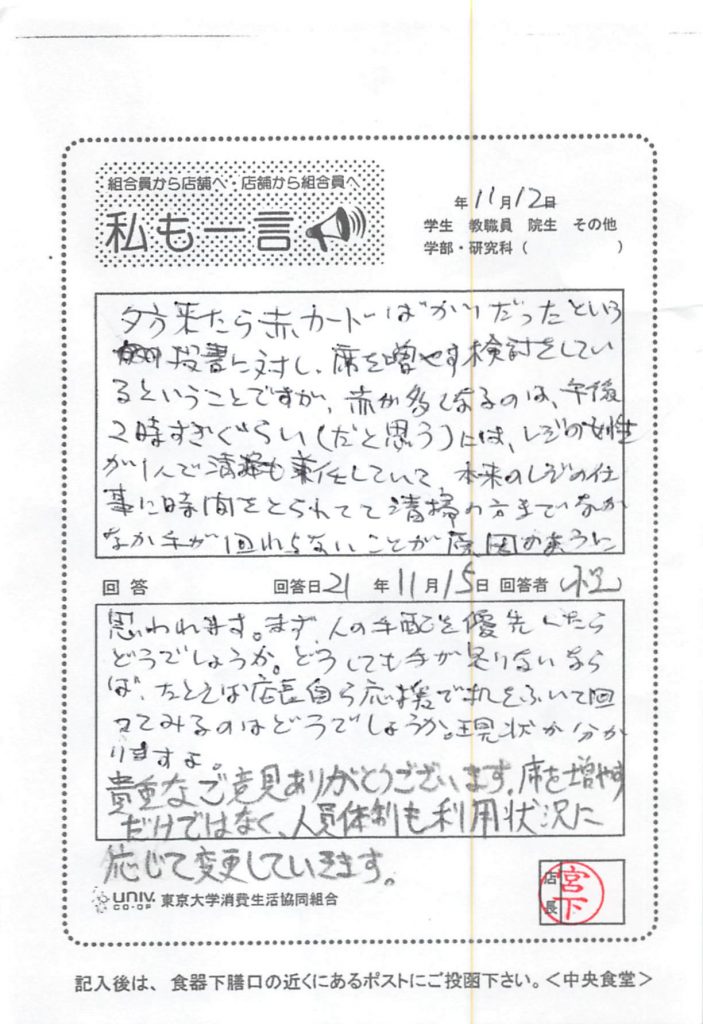 組合員から店舗へ・店舗から組合員へ
私も一言
年 11月12日
学生 教職員 院生 その他
学部・研究科（ ）
夕方来たら赤カードばかりだったという
投書に対し、席を増やす検討をしてい
るということですが、赤が多くなるのは、午後
2時すぎぐらい(だと思う)には、レジの女性
が1人で清掃も兼任していて 本来のレジの仕
事に時間をとられてて清掃の方までなか
なか手が回れらないことが原因のように
回答 回答日21年11月15日 回答者
思われます。まず、人の手配を優先したら
どうでしょうか。どうしても手が足りないなら
ば、たとえば店長自ら応援で机をふいて回
ってみるのはどうでしょうか。現状が分か
りますよ。
貴重なご意見ありがとうございます。席を増やす
だけではなく、人員体制も利用状況に
応じて変更していきます。
UNIV. CO-OP 東京大学消費生活協同組合
店長 宮下
記入後は、食器下膳口の近くにあるポストにご投函下さい。＜中央食堂＞